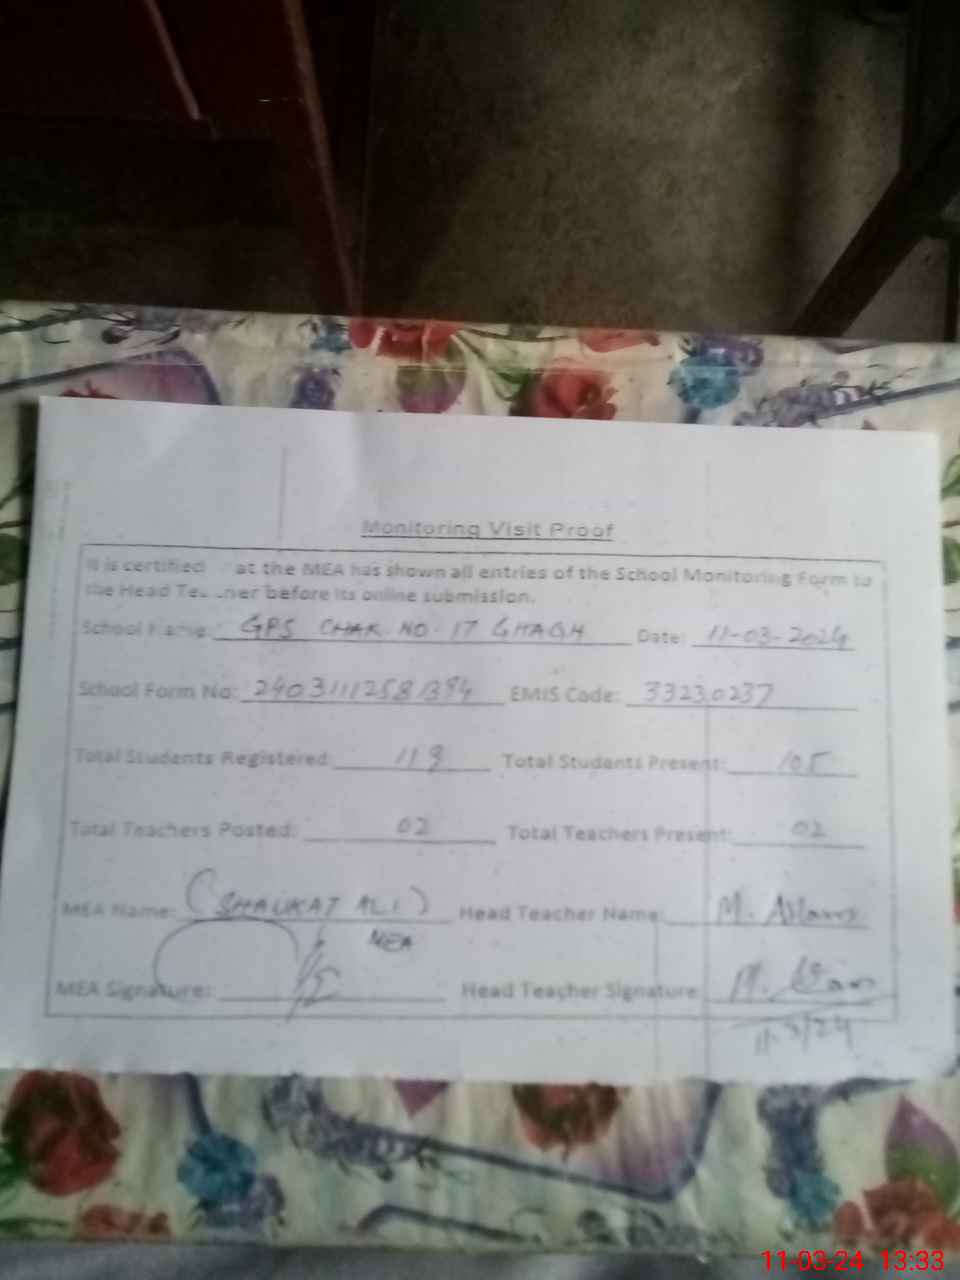 Monitoring Visit Proof
It is certified at the MEA has shown all entries of the School Monitoring Form to
the Head Teacher before its online submission.
School Name: GPS CHAK NO. 17 GHAGH Date: 11-03-2024
School Form No: EMIS Code: 33230237
Total Students Registered: Total Students Present: 105
Total Teachers Posted: 02 Total Teachers Present: 02
MEA Name: (SHAUKAT ALI) Head Teacher Name: M. Aslam
MEA
MEA Signature: Head Teacher Signature
11-03-24 13:33